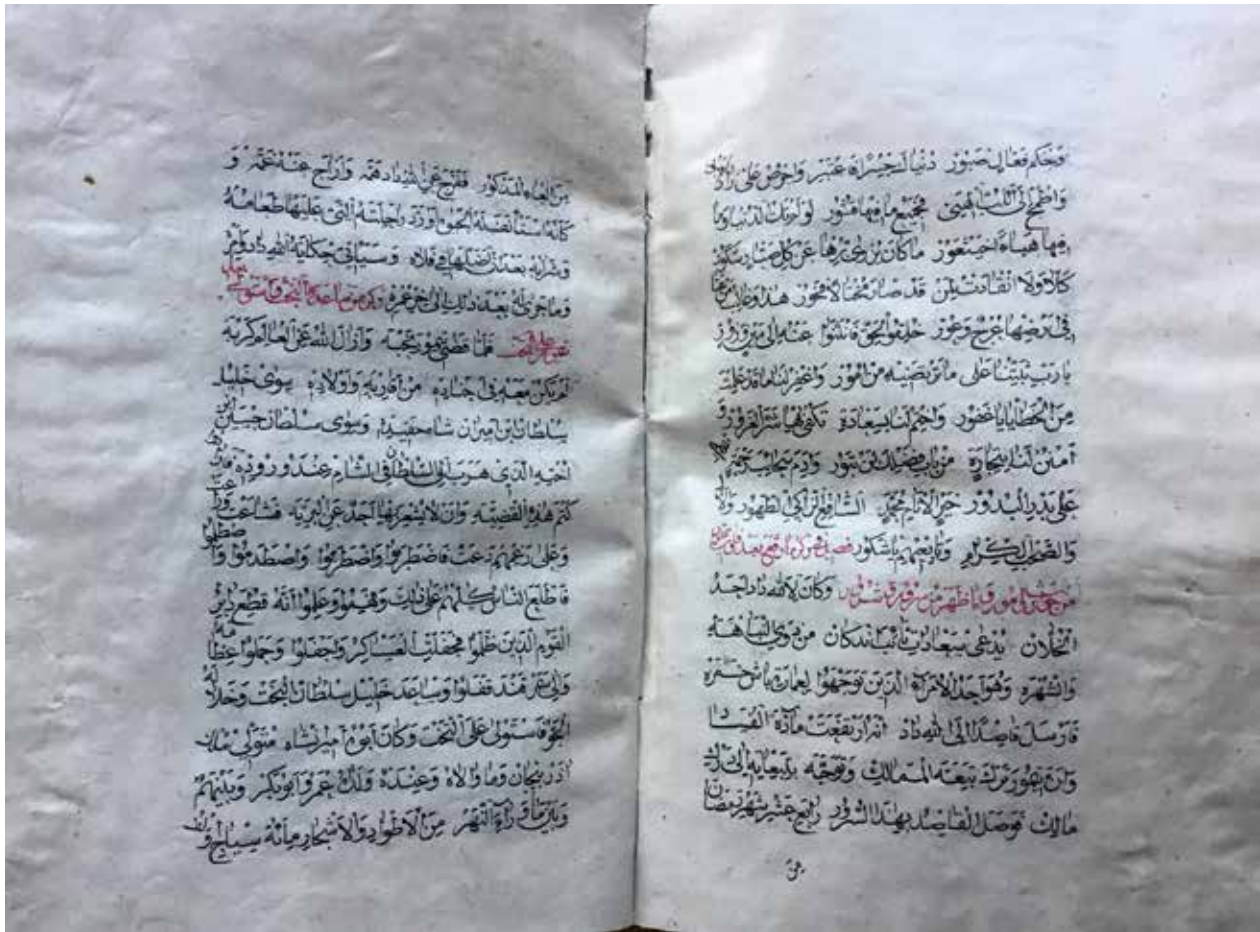 وحكم فعالى صبور دنيا لجسرا عبر واحرص على
واطمح الى اللب الهنى بجميع ما فيها فتور لو ادركت لدنيا وما
فيها هباء ما كان يزوى برها عن كل صبار شكور
كلا ولا انقادت لمن قد صار مختالا فخور هذا
فى ربضها عرج وعور خلفوا الحق فانثنوا عنه الى مين وزور
يارب ثبتنا على ما ترتضيه من امور واغفر لنا ما قد علمت
من الخطايا يا غفور واختم لنا بسعادة تكفى بها شر الغرور و
امنن لنا بتجارة من باب فضلك لن تبور وادم سحائب رحمة
على بدر البدور خير الانام محمد الشافع الزاكى الطهور والال
والصحب الكرام وتابعيهم يا شكور فصل فى ذكر ما وقع بعد
من حوادث وامور وما ظهر من سرور وشرور وكان لالله داد احد
الخلان يدعى سعادات نائب اندكان من ذوى النباهه
والشهره وهو احد الامراء الذين توجهوا لعمارة باش خمره
فارسل قاصدا الى الله داد ان ارتفعت مادة الفساد
وان تيمور ترك تبعة الممالك وتوجه بتبعاته الى درك
مالك فوصل القاصد بهذا السرور رابع عشر شهر رمضان
من
من العام المذكور ففرج عن الله داد همه وازاح عنه غمه و
كانه استانف له الحيوة اورد راحلته التى عليها طعامه
وشرابه بعد ان اضلها فى فلاه وسياتى حكاية الله داد وامره
وما جرى له بعد ذلك الى اخر عمره ذكر من ساعده البخت فاستولى
بعد تيمور على التخت فلما قضى تيمور نحبه وازال الله عن العالم كربه
لم يكن معه فى جنده من اقاربه واولاده سوى خليل
سلطان ابن اميران شاه حفيده وسوى سلطان حسين ابن
اخته الذى هرب الى السلطان فى الشام عند وروده
كتم هذه القضيه وان لا يشعر بها احد من البريه فشاعت
وعلى رغمهم ذاعت فاضطربوا واضطرموا واصطدموا
فاطلع الناس كلهم على ذلك وهيموا وعلموا انه قطع دابر
القوم الذين ظلموا فجفلت العساكر واجفلوا وحملوا عظامه
والى سمرقند قفلوا وساعد خليل سلطان البخت وخلا له
الجو فاستولى على التخت وكان ابوه اميرانشاه متولى ممالك
اذربيجان وما والاه وعنده ولداه عمر وابو بكر وبينهم
وبين ما وراء النهر من الاطواد والاشجار مياه